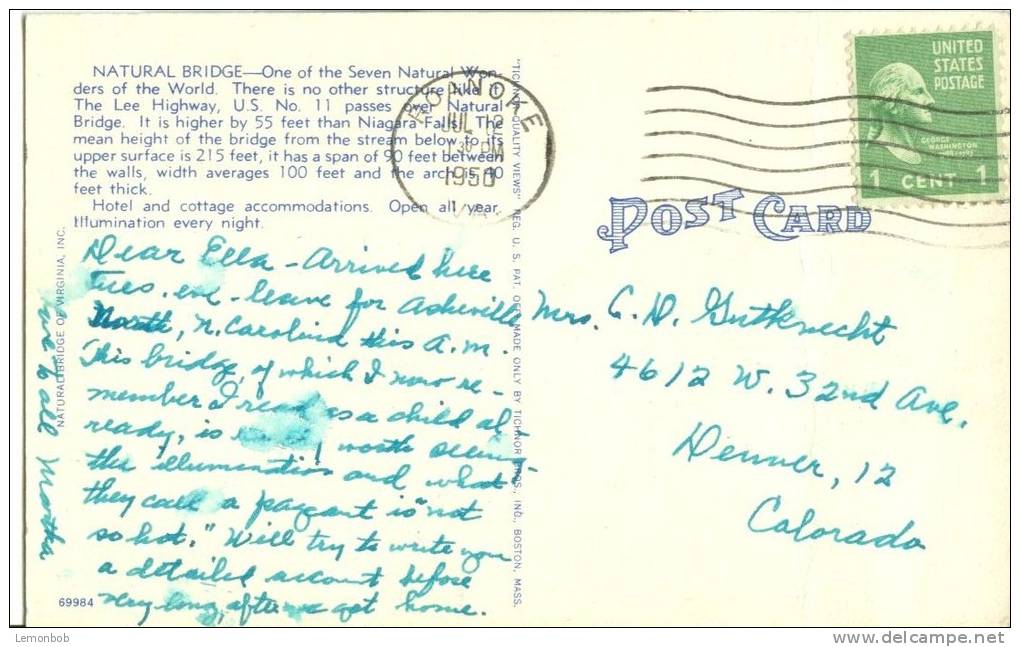 NATURAL BRIDGE—One of the Seven Natural Won-
ders of the World. There is no other structure like it.
The Lee Highway, U.S. No. 11 passes over Natural
Bridge. It is higher by 55 feet than Niagara Falls. The
mean height of the bridge from the stream below to its
upper surface is 215 feet, it has a span of 90 feet between
the walls, width averages 100 feet and the arch is 40
feet thick.
Hotel and cottage accommodations. Open all year.
Illumination every night.
Dear Ella - Arrived here
Tues. eve - leave for Asheville
North, N. Carolina this A.M.
This bridge, of which I now re-
member I read as a child al-
ready, is worth seeing
the illumination and what
they call a pageant is "not
so hot." Will try to write you
a detailed account before
very long, after we get home.
Love to all Martha
NATURAL BRIDGE OF VIRGINIA, INC.
69984
"TICHNOR QUALITY VIEWS" REG. U. S. PAT. OFF. MADE ONLY BY TICHNOR BROS., INC., BOSTON, MASS.
ROANOKE
JUL 12
1 30 PM
1950
VA.
POST CARD
UNITED
STATES
POSTAGE
GEORGE
WASHINGTON
1 CENT 1
Mrs. C. D. Gutknecht
4612 W. 32nd Ave.
Denver, 12
Colorado
Lemonbob
www.delcampe.net